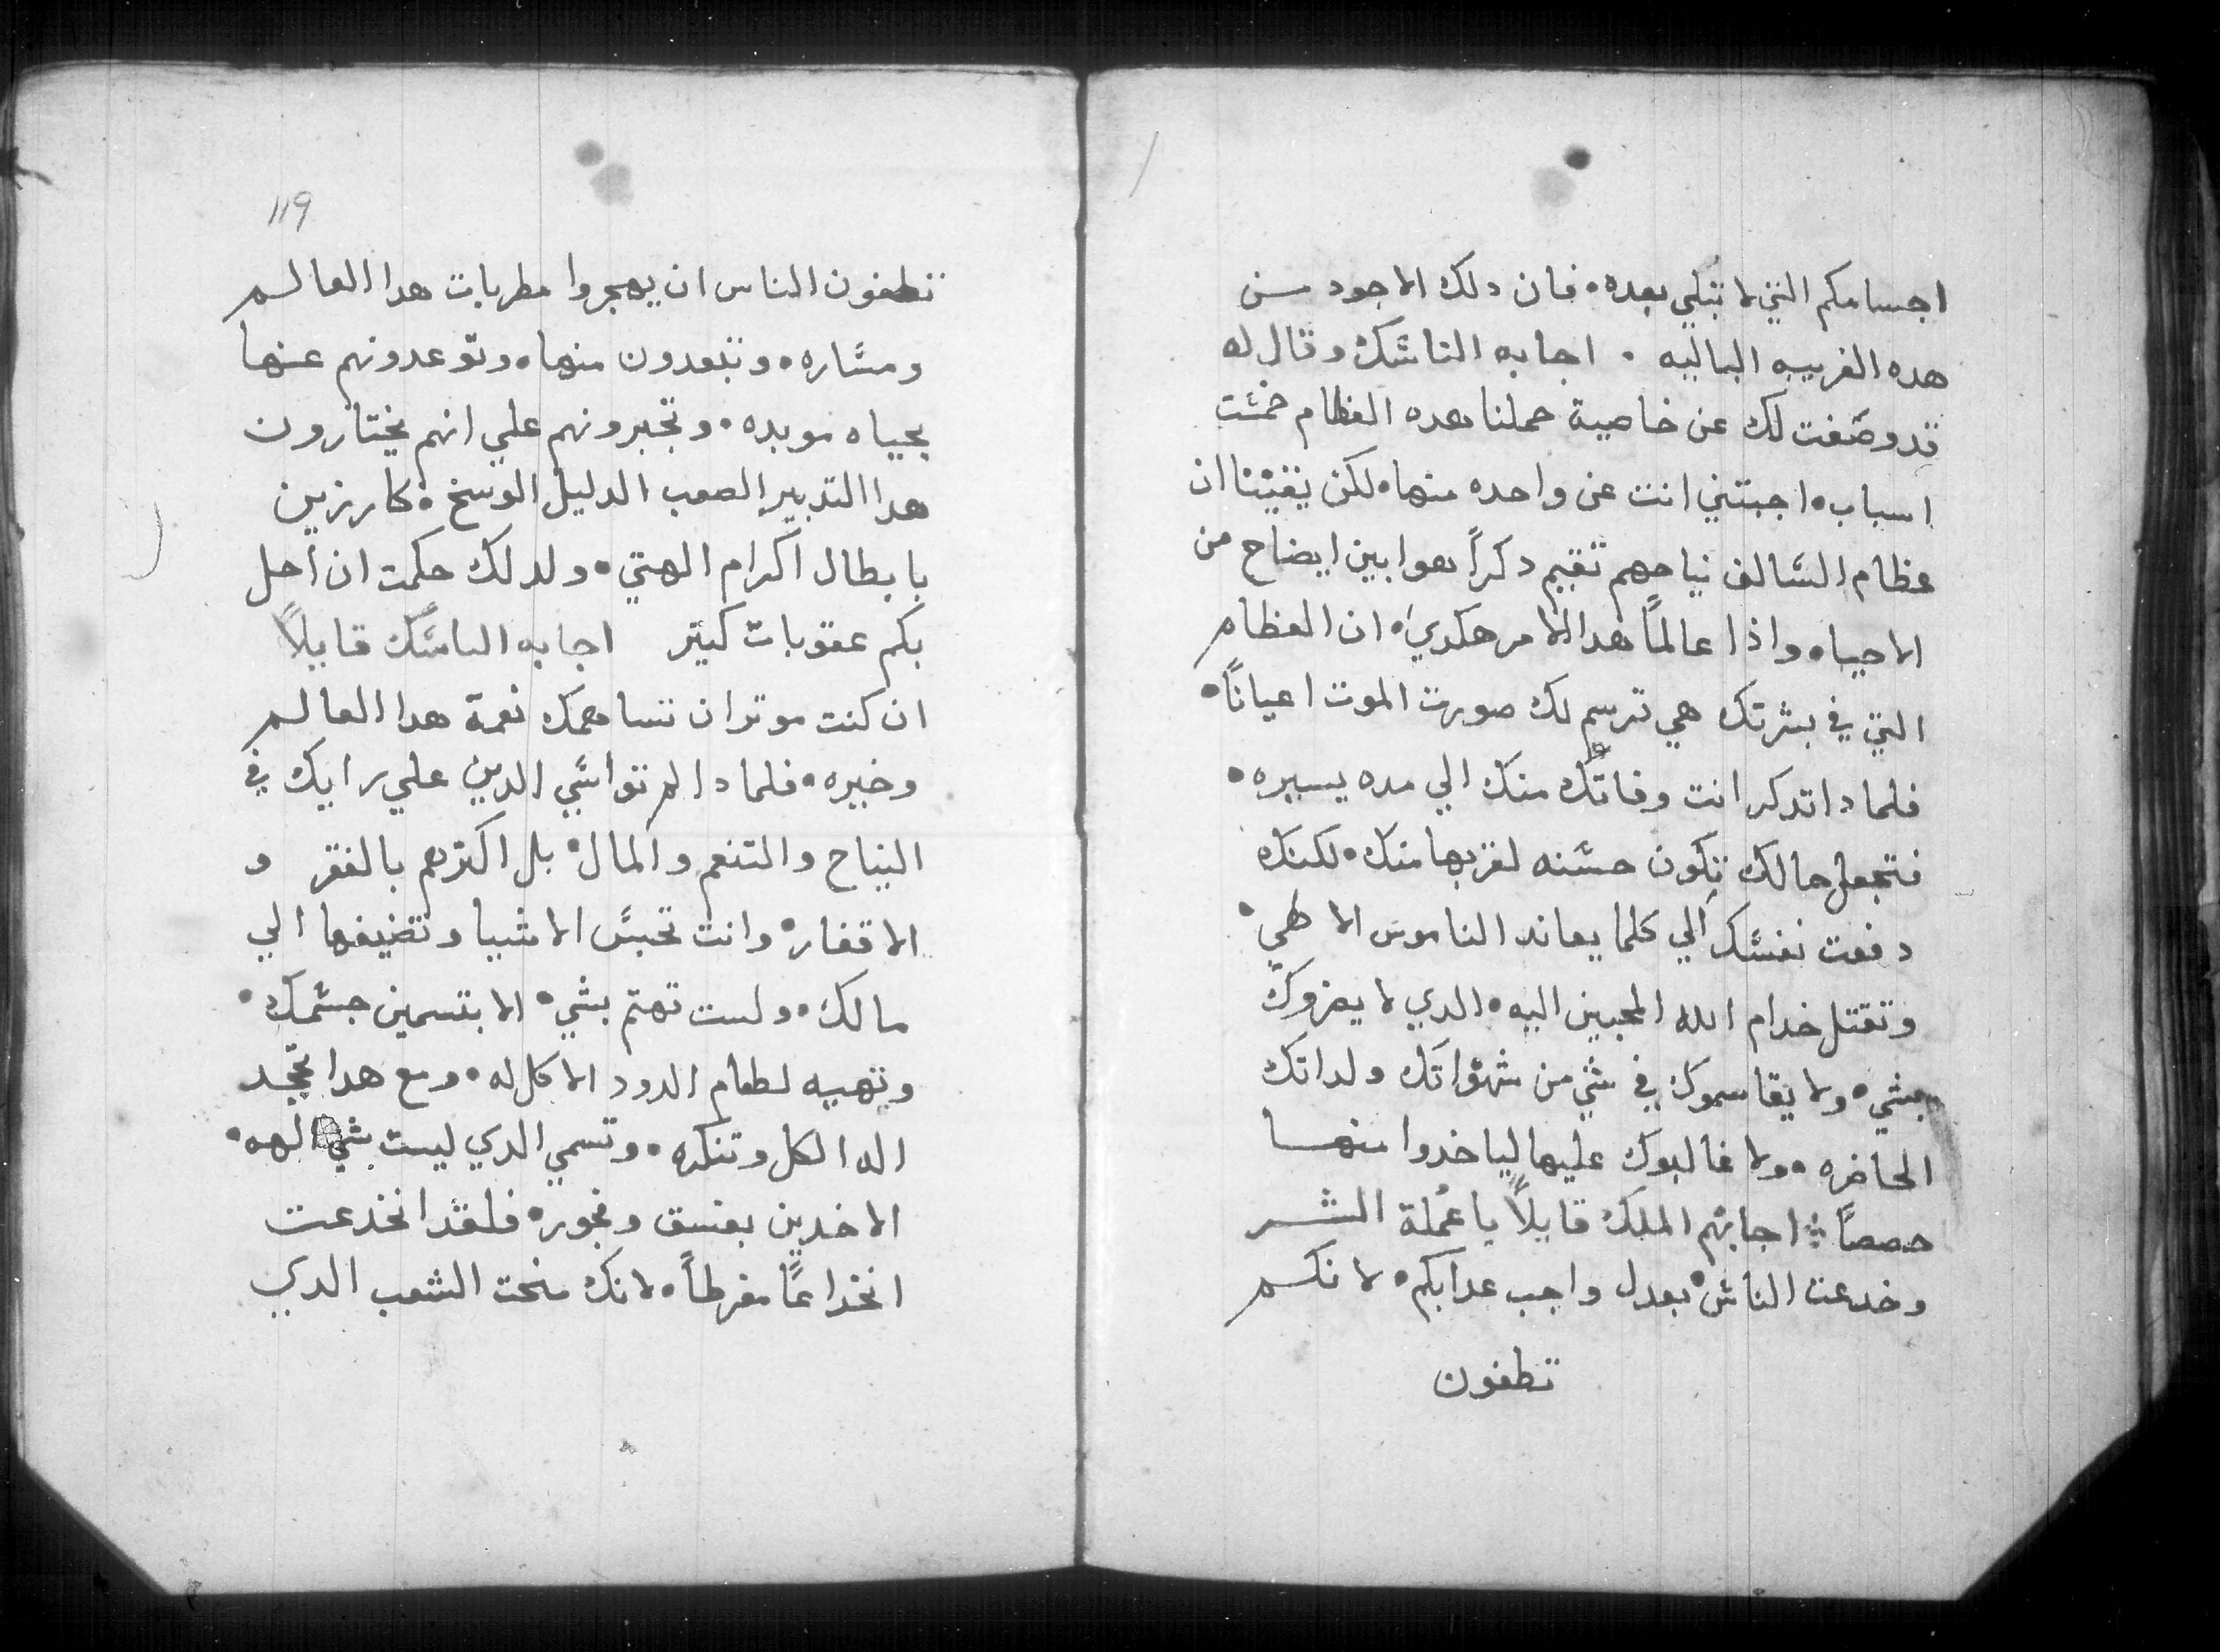 اجسامكم التي لا تبلي بعده • فان دلك الاجود من
هده الغريبه الباليه • اجابه الناسك وقال له
قد وصفت لك عن خاصية حملنا هده العظام خمست
اسباب • اجبتني انت عن واحده منها • لكن يقيننا ان
عظام السالف نياحهم تقيم دكراً هوا بين ايضاح من
الاحياه واذا عالماً هدا الامر هكدي • ان العظام
التي في بشرتك هي ترسم لك صورت الموت اعياناً •
فلمادا تدكر انت وفاتك منك الي مده يسيره •
فتجعل حالك تكون حسنه لقربها منك • لكنك
دفعت نفسك الي كلما يعاند الناموس الاهي •
وتقتل خدام الله المحبين اليه • الدي لا يعزوك
بشي • ولا يقاسموك في شي من شهواتك ولداتك
الحاضره • ولا غالبوك عليها لياخدوا منها
حصصاً : اجابهم الملك قايلاً يا عملة الشر
وخدعت الناس • بعدل واجب عدابكم • لانكم
تطغون
119
تطغون الناس ان يهجروا مطربات هدا العالم
ومساره • وتبعدون منها • وتوعدونهم عنها
بحياه موبده • وتجبرونهم علي انهم يختارون
هدا التدبير الصعب الدليل الوسخ • كارزين
بابطال اكرام الهتي • ولدلك حكمت ان احل
بكم عقوبات كتير اجابه الناسك قايلاً
ان كنت موتر ان تساهمك نعمة هدا العالم
وخيره • فلمادا لم تواسي الدين علي رايك في
النياح والتنعم والمال • بل اكترهم بالفقر و
الاقفار • وانت تحبس الاشيا وتضيفها الي
مالك • ولست تهتم بشي • الا بتسمين جسمك •
وتهييه لطعام الدود الاكل له • ومع هدا تجحد
اله الكل وتنكره • وتسمي الدي ليست بشي الهه •
الاخدين بفسق وفجور • فلقد انخدعت
انخداعاً مفرطاً • لانك منحت الشعب الدي